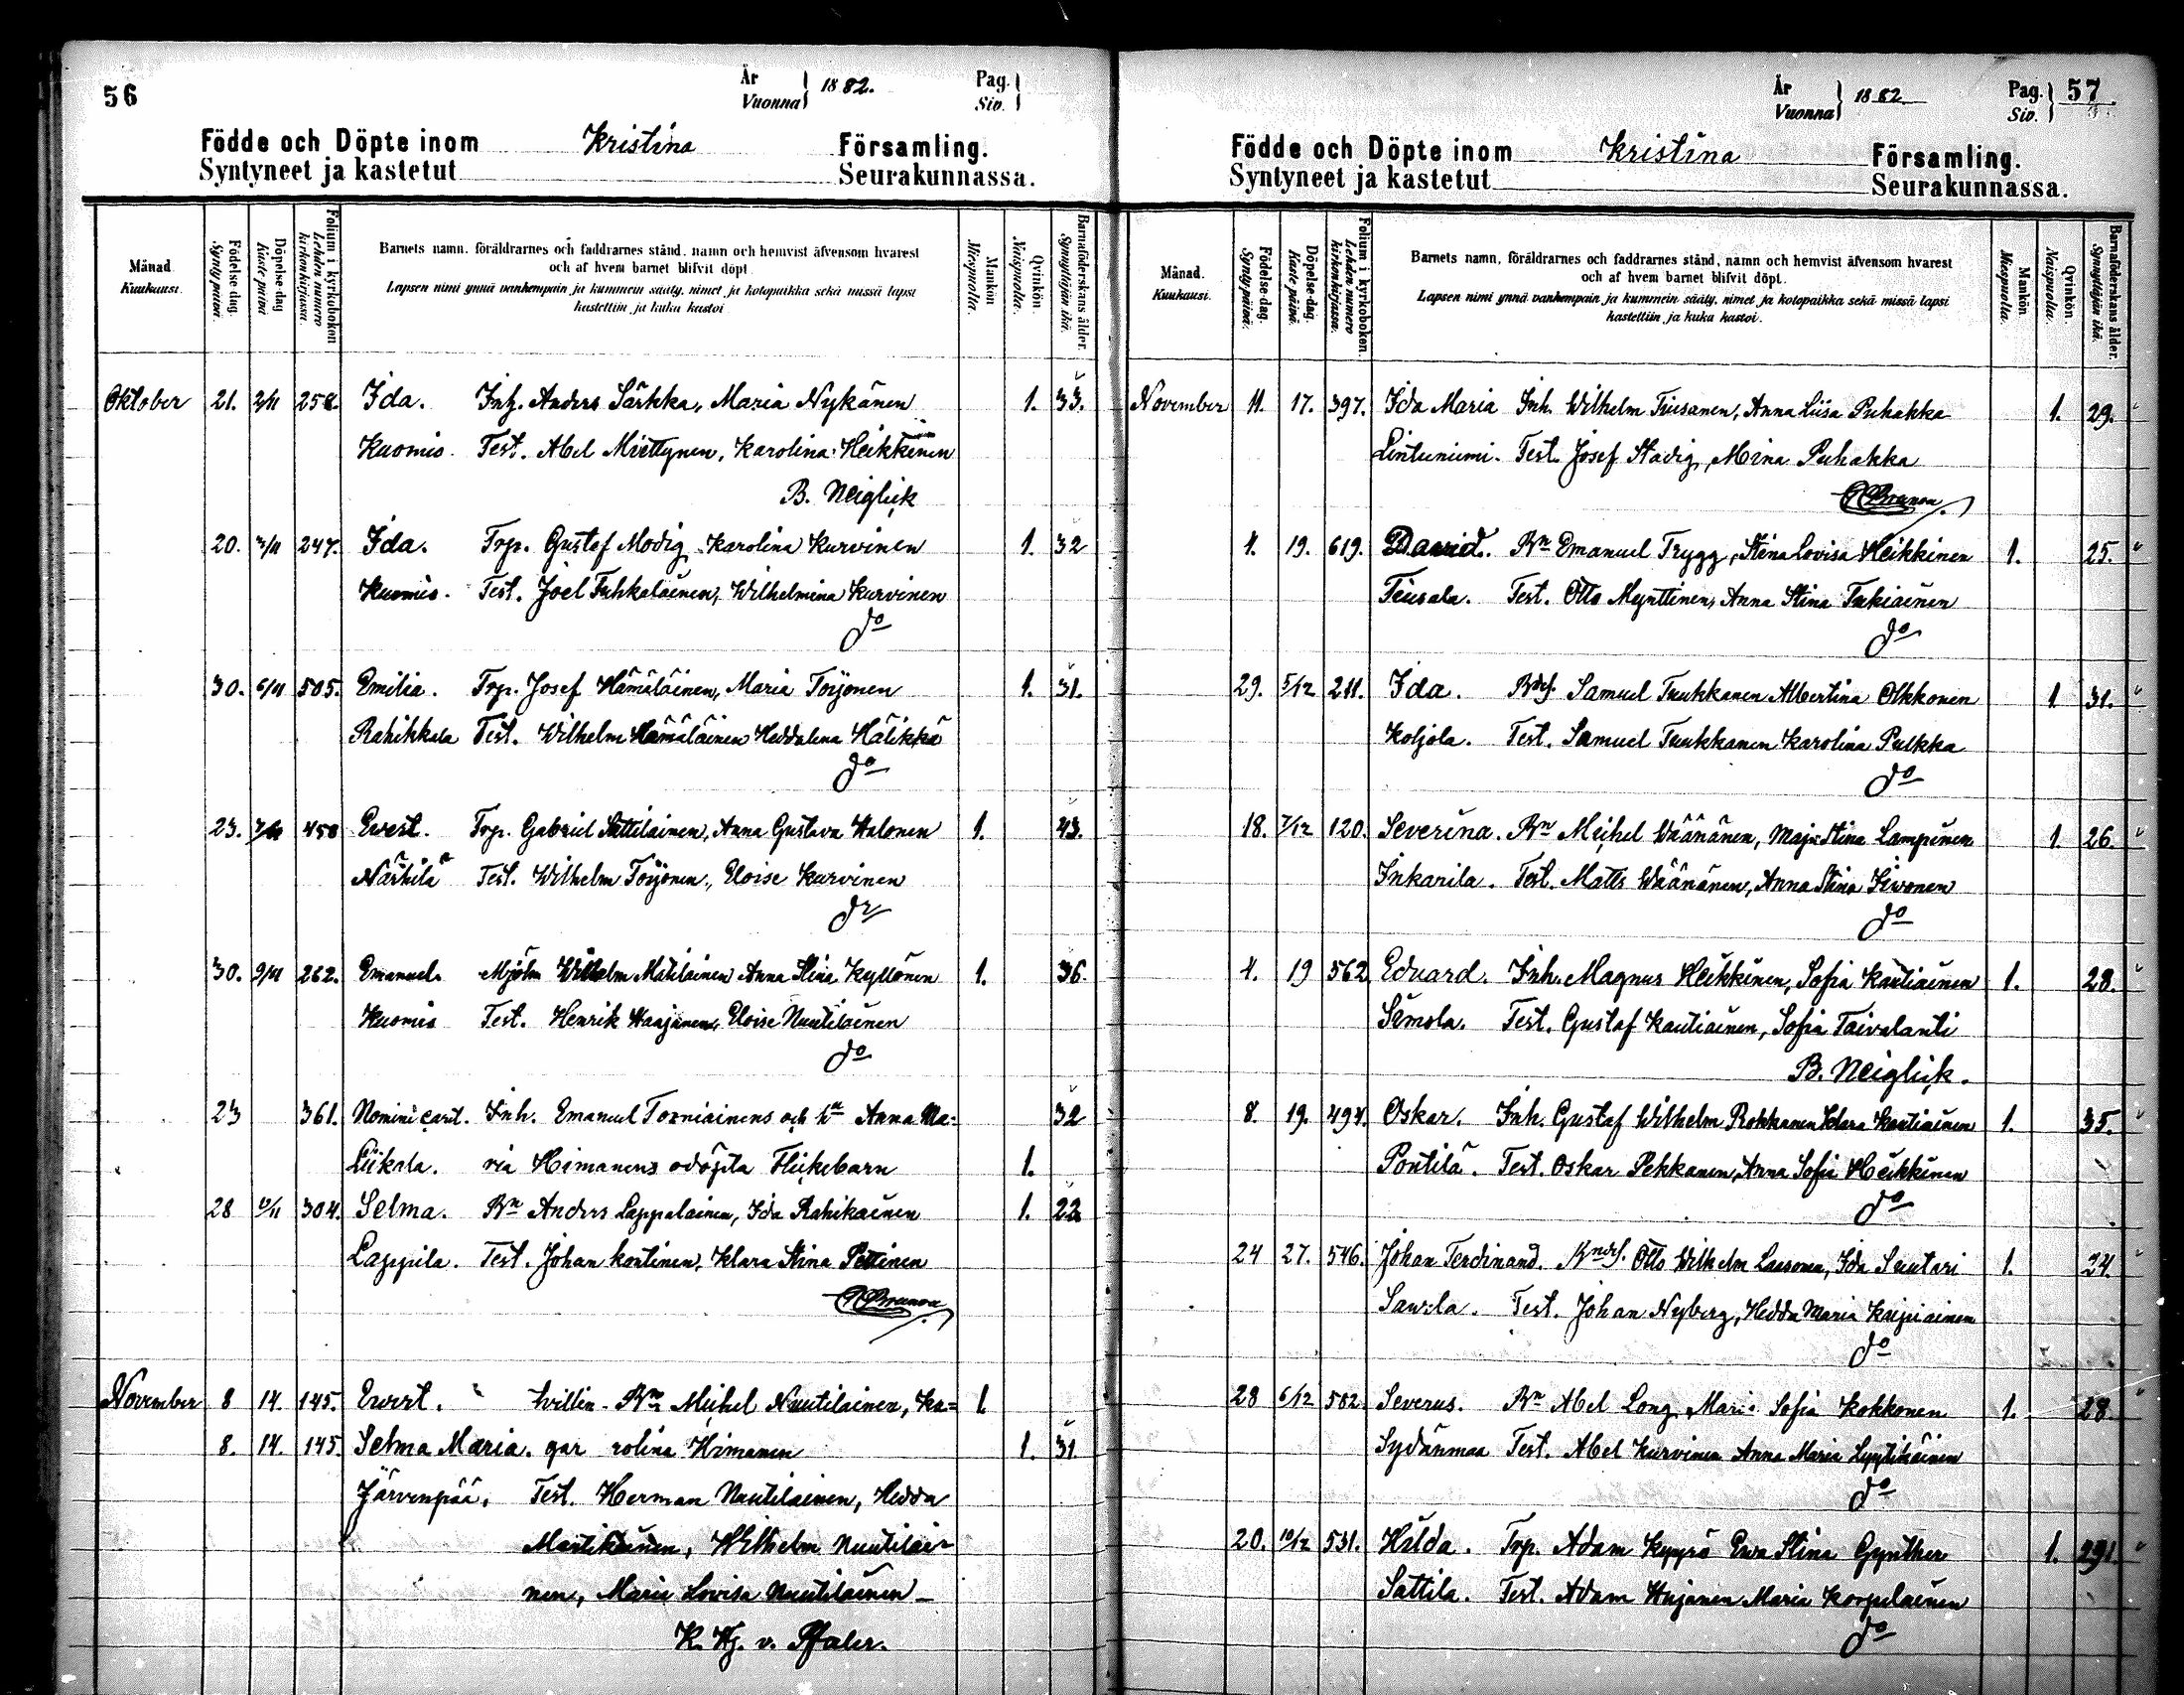 56
År
Vuonna
1882.
Pag.
Siv.
Födde och Döpte inom Kristina Församling.
Syntyneet ja kastetut Seurakunnassa.
Månad.
Kuukausi.
Födelse-dag.
Synty päivä.
Döpelse-dag
Kaste päivä
Folium i kyrkoboken
Lehden numero kirkonkirjassa.
Barnets namn, föräldrarnes och faddrarnes stånd, namn och hemvist äfvensom hvarest
och af hvem barnet blifvit döpt.
Lapsen nimi ynnä vanhempain ja kummein sääty, nimet ja kotopaikka sekä missä lapsi
kastettiin ja kuka kastoi
Mankön
Miespuolia.
Qvinkön.
Naispuolia.
Barnaföderskans ålder.
Synnyttäjän ikä.
Oktober 21. 2/11 258. Ida. Inh. Anders Särkka, Maria Nykänen 1. 33.
Kuomio. Test. Abel Miettynen, Karolina Heikkinen
B. Neiglick
20. 3/11 247. Ida. Trp. Gustaf Modig Karolina Kurvinen 1. 32
Kuomio. Test. Joel Tuhkalainen, Wilhelmina Kurvinen
do
30. 5/11 505. Emilia. Trp. Josef Hämäläinen, Maria Töijönen 1. 31.
Rahikkala Test. Wilhelm Hämäläinen Heddalena Hälikkä
do
23. 458 Evert. Trp. Gabriel Sattilainen, Anna Gustava Halonen 1. 43.
Närhilä Test. Wilhelm Töijönen, Eloise Kurvinen
do
30. 9/11 262. Emanuel. Mjöln Wilhelm Matilainen Anna Stina Kyllönen 1. 36.
Kuomio Test. Henrik Haajanen, Eloise Nuutilainen
do
23 361. Nomine carit. Inh. Emanuel Torniainens och hn Anna Ma= 32
Liikala. ria Himanens odöpta Flickebarn 1.
28 304. Selma. Bn Anders Lappalainen, Ida Rahikainen 1. 22
Lappila. Test. Johan Kontinen, Klara Stina Pettinen
November 8 14. 145. Evert. tvillin- Bn Michel Nuutilainen, Ka= 1.
8. 14. 145. Selma Maria. gar rolina Himanen 1. 31
Järvenpää. Test. Herman Nuutilainen, Hedda
Martikainen, Wilhelm Nuutilai-
nen, Maria Lovisa Nuutilainen
K. Hj. v. Pfaler.
År
Vuonna
1882
Pag.
Siv.
57
Födde och Döpte inom Kristina Församling.
Syntyneet ja kastetut Seurakunnassa.
Månad.
Kuukausi.
Födelse-dag.
Synty päivä.
Döpelse-dag.
Kaste päivä.
Folium i kyrkoboken.
Lehden numero kirkonkirjassa.
Barnets namn, föräldrarnes och faddrarnes stånd, namn och hemvist äfvensom hvarest
och af hvem barnet blifvit döpt.
Lapsen nimi ynnä vanhempain ja kummein sääty, nimet ja kotopaikka sekä missä lapsi
kastettiin ja kuka kastoi.
Mankön
Miespuolia.
Qvinkön.
Naispuolia.
Barnaföderskans ålder.
Synnyttäjän ikä.
November 11. 17. 397. Ida Maria Inh. Wilhelm Tiusanen, Anna Liisa Puhakka 1. 29.
Lintuniemi. Test. Josef Stadig, Mina Puhakka
4. 19. 619. David. Bn Emanuel Trygg, Stina Lovisa Heikkinen 1. 25.
Teusala. Test. Otto Mynttinen, Anna Stina Tukiainen
do
29. 5/12 211. Ida. Samuel Tuukkanen Albertina Olkkonen 1. 31.
Koljola. Test. Samuel Tuukkanen Karolina Pulkka
do
18. 7/12 120. Severina. Bn Michel Wäänänen, Maja Stina Lampinen 1. 26.
Inkarila. Test. Matts Wäänänen, Anna Stina Siwonen
do
4. 19 562 Eduard. Inh. Magnus Heikkinen, Sofia Kautiainen 1. 28.
Simola. Test. Gustaf Kautiainen, Sofia Taivalanti
B. Neiglick.
8. 19. 494. Oskar. Inh. Gustaf Wilhelm Rokkanen Klara Kautiainen 1. 35.
Pontilä. Test. Oskar Pekkanen, Anna Sofia Heikkinen
do
24 27. 546. Johan Ferdinand. Otto Wilhelm Lasonen, Ida Suutari 1. 24.
Test. Johan Nyberg, Hedda Maria Kaipiainen
do
28 6/12 582. Severus. Bn Abel Long, Maria Sofia Kokkonen 1. 28
Sydänmaa Test. Abel Kurvinen Anna Maria Lyytikäinen
do
20. 10/12 531. Hilda. Trp. Adam Kyyrö Ewa Stina Gynther 1. 29
Sattila. Test. Adam Hujanen Maria Korpelainen
do